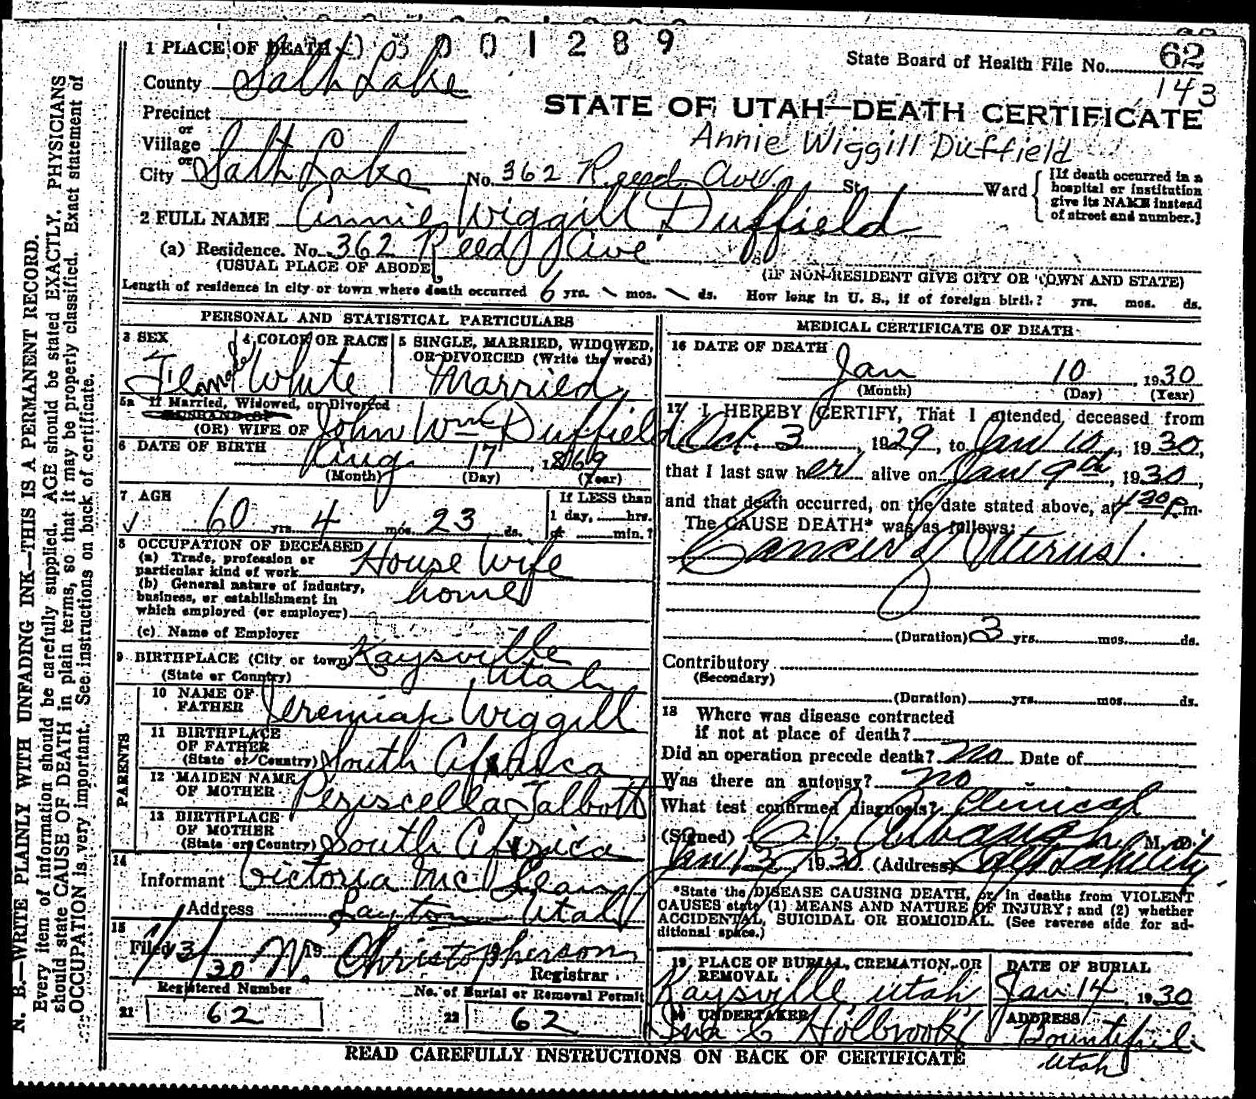 0 0 3 0 0 1 2 8 9
1 PLACE OF DEATH
State Board of Health File No. 62
143
County Salt Lake
STATE OF UTAH—DEATH CERTIFICATE
Precinct
Annie Wiggill Duffield
or
Village
or
City Salt Lake No. 362 Reed Ave. St. Ward
[If death occurred in a
hospital or institution
give its NAME instead
of street and number.]
2 FULL NAME Annie Wiggill Duffield
(a) Residence. No. 362 Reed Ave
(USUAL PLACE OF ABODE)
(IF NON-RESIDENT GIVE CITY OR TOWN AND STATE)
Length of residence in city or town where death occurred 6 yrs. \ mos. \ ds. How long in U. S., if of foreign birth? yrs. mos. ds.
PERSONAL AND STATISTICAL PARTICULARS
3 SEX Female
4 COLOR OR RACE White
5 SINGLE, MARRIED, WIDOWED,
OR DIVORCED (Write the word)
Married
5a If Married, Widowed, or Divorced
HUSBAND OF
(OR) WIFE OF John Wm Duffield
6 DATE OF BIRTH Aug 17, 1869
(Month) (Day) (Year)
7 AGE
60 yrs. 4 mos. 23 ds.
If LESS than
1 day, ...... hrs.
or ...... min.?
8 OCCUPATION OF DECEASED
(a) Trade, profession or
particular kind of work House Wife
(b) General nature of industry,
business, or establishment in
which employed (or employer) home
(c) Name of Employer
9 BIRTHPLACE (City or town) Kaysville
(State or Country) Utah
PARENTS
10 NAME OF
FATHER Jeremiah Wiggill
11 BIRTHPLACE
OF FATHER
(State or Country) South Africa
12 MAIDEN NAME
OF MOTHER Periscella Talbott
13 BIRTHPLACE
OF MOTHER
(State or Country) South Africa
14
Informant Victoria McLean
Address Layton Utah
15
Filed 1/13/30 19 N. Christopherson
Registrar
Registered Number
No. of Burial or Removal Permit
21 62
22 62
MEDICAL CERTIFICATE OF DEATH
16 DATE OF DEATH
Jan 10, 1930
(Month) (Day) (Year)
17 I HEREBY CERTIFY, That I attended deceased from
Oct. 3, 1929, to Jan 10, 1930,
that I last saw her alive on Jan 9th, 1930,
and that death occurred, on the date stated above, at 4 30 P.m.
The CAUSE DEATH* was as follows:
Cancer of Uterus.
(Duration) 3 yrs. mos. ds.
Contributory
(Secondary)
(Duration) yrs. mos. ds.
18 Where was disease contracted
if not at place of death?
Did an operation precede death? No Date of
Was there an autopsy? no
What test confirmed diagnosis? Clinical
(Signed) M. D.
Jan 13, 1930 (Address) Salt Lake City
*State the DISEASE CAUSING DEATH, or, in deaths from VIOLENT
CAUSES state (1) MEANS AND NATURE OF INJURY; and (2) whether
ACCIDENTAL, SUICIDAL OR HOMICIDAL. (See reverse side for ad-
ditional space.)
19 PLACE OF BURIAL, CREMATION, OR
REMOVAL
Kaysville, Utah
DATE OF BURIAL
Jan 14, 1930
20 UNDERTAKER
Holbrook
ADDRESS
Bountiful
Utah
READ CAREFULLY INSTRUCTIONS ON BACK OF CERTIFICATE
N. B.—WRITE PLAINLY WITH UNFADING INK—THIS IS A PERMANENT RECORD.
Every item of information should be carefully supplied. AGE should be stated EXACTLY. PHYSICIANS
should state CAUSE OF DEATH in plain terms, so that it may be properly classified. Exact statement of
OCCUPATION is very important. See instructions on back of certificate.